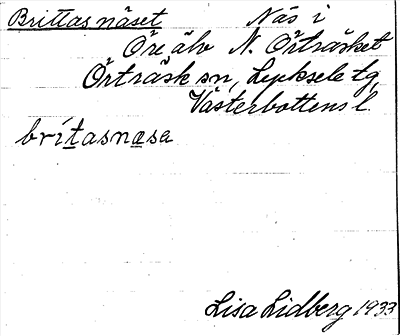 Brittasnäset Näs i
Öre älv N. Örträsket
Örträsk sn, Lycksele tg,
Västerbottens l.
brítasnasa
Lisa Lidberg 1933